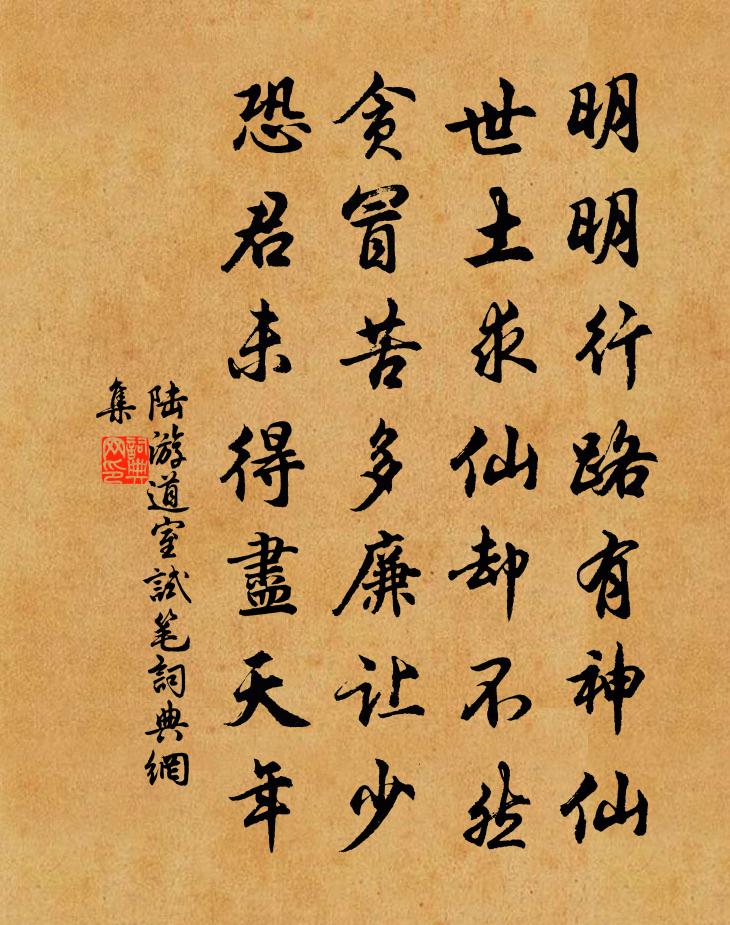 明明行路有神仙
世士求仙却不然
贪冒苦多廉让少
恐君未得盡天年
陆游道室試笔詞典網
集
詞典
网印